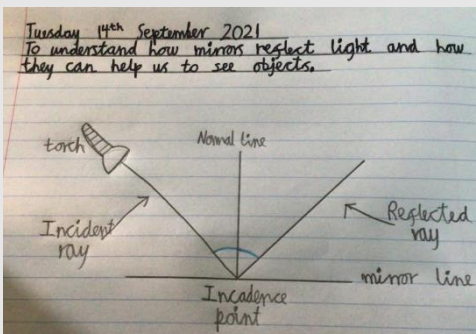 Tuesday 14th September 2021
To understand how mirrors reglect light and how
they can help us to see objects.
torch
Normal line
Incident
ray
Reglected
ray
mirror line
Incadence
point